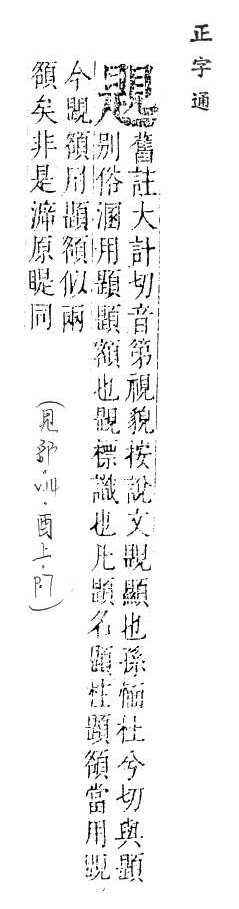 正字通
䚣
舊註大計切音第視貌按說文䚣顯也孫愐杜兮切與題
別俗溷用題題額也䚣標識也凡題名題柱題額當用䚣
今䚣額用題額似兩
額矣非是渧原睼同
(見部酉上·p.7)